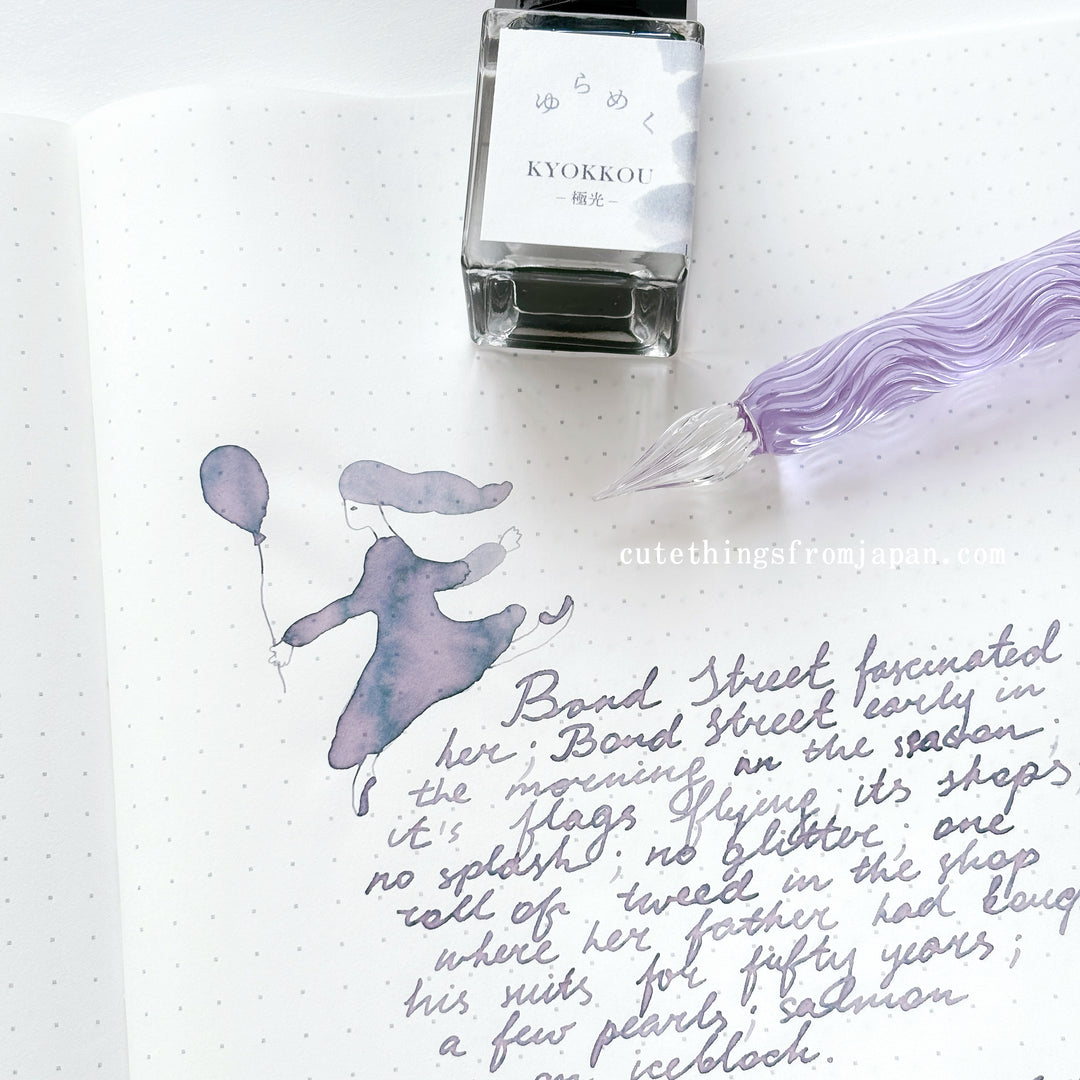 ゆらめく
KYOKKOU
–極光–
cutethingsfromjapan.com
Bond Street fascinated
her; Bond Street early in
the morning in the season;
it's flags flying; its shops;
no splash; no glitter; one
roll of tweed in the shop
where her father had boug
his suits for fifty years;
a few pearls; salmon
on iceblock.